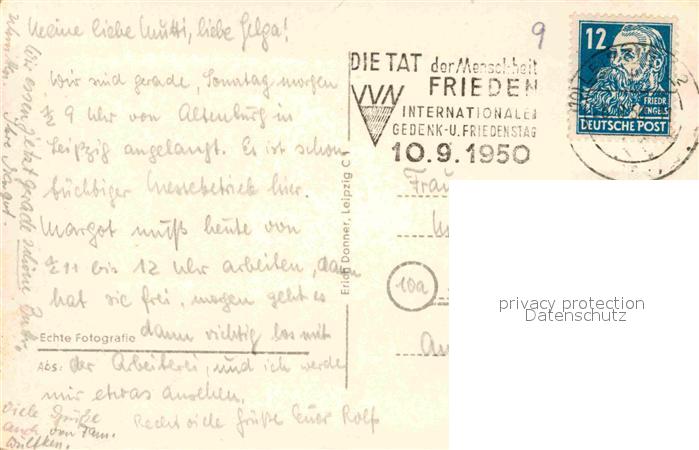 Meine liebe Mutti, liebe Helga!
Wir sind gerade, Sonntag morgen
½ 9 Uhr von Altenburg in
Leipzig angelangt. Es ist schon
tüchtiger Messebetrieb hier.
Margot muß heute von
½ 11 bis 12 Uhr arbeiten, dann
hat sie frei, morgen geht es
dann richtig los mit
der Arbeiterei, und ich werde
mir etwas ansehen.
Recht viele Grüße Euer Rolf
Viele Grüße
auch von Fam.
Wir essen jetzt gerade schöne
Eure Margot.
Echte Fotografie
Abs:
Erich Donner, Leipzig C 1
9
DIE TAT der Menschheit
FRIEDEN
VVN
INTERNATIONALER
GEDENK-U. FRIEDENSTAG
10.9.1950
12
FRIEDR.
ENGELS
DEUTSCHE POST
Frau
10a
privacy protection
Datenschutz